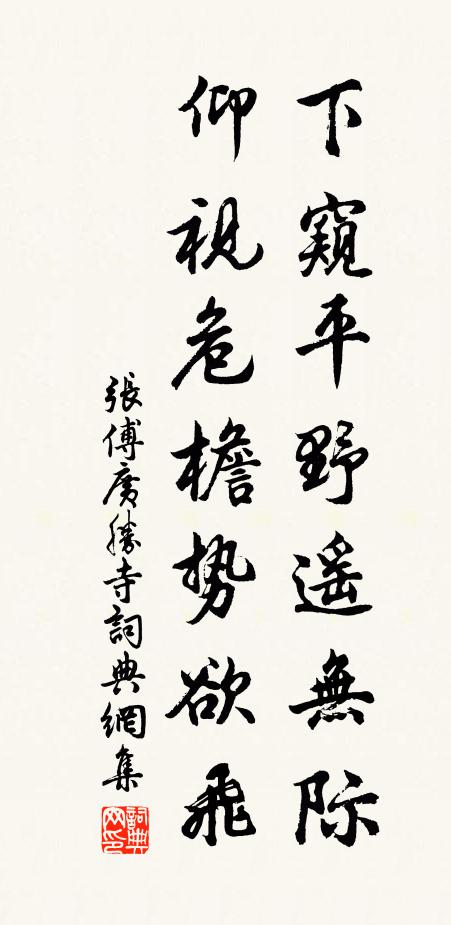 下窺平野遥無際
仰視危檐勢欲飛
張傅廣勝寺詞典網集
詞典
网印